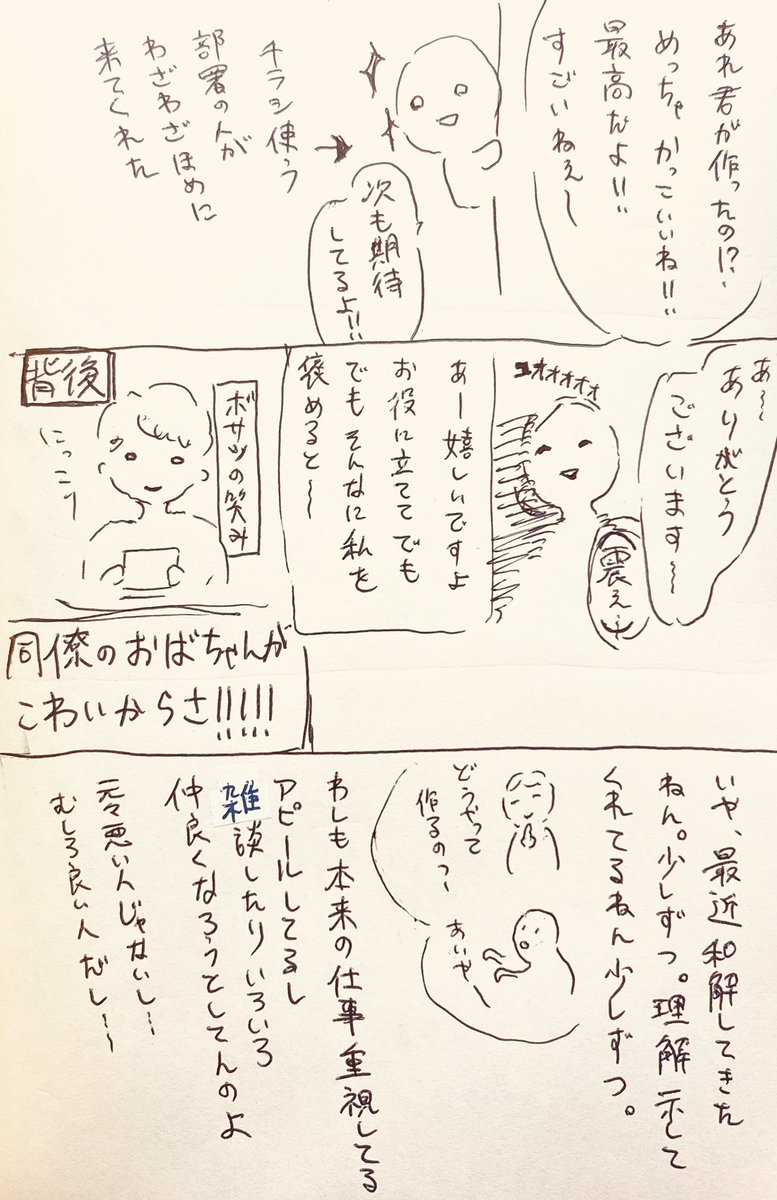 あれ君が作ったの!?
めっちゃかっこいいね!!
最高だよ!!
すごいねぇ〜
次も期待
してるよ!!
チラシ使う
部署の人が
わざわざほめに
来てくれた
あ〜
ありがとう
ございます〜
震え
オオオオオ
あー嬉しいですよ
お役に立ててでも
でもそんなに私を
褒めると〜
背後
ボサツの笑み
にっこり
同僚のおばちゃんが
こわいからさ!!!!!
いや、最近和解してきた
ねん。少しずつ。理解示して
くれてるねん少しずつ。
どうやって
作るの〜
あいや
わしも本来の仕事重視してる
アピールしてるし
雑談したりいろいろ
仲良くなろうとしてんのよ
元々悪い人じゃないし…
むしろ良い人だし…